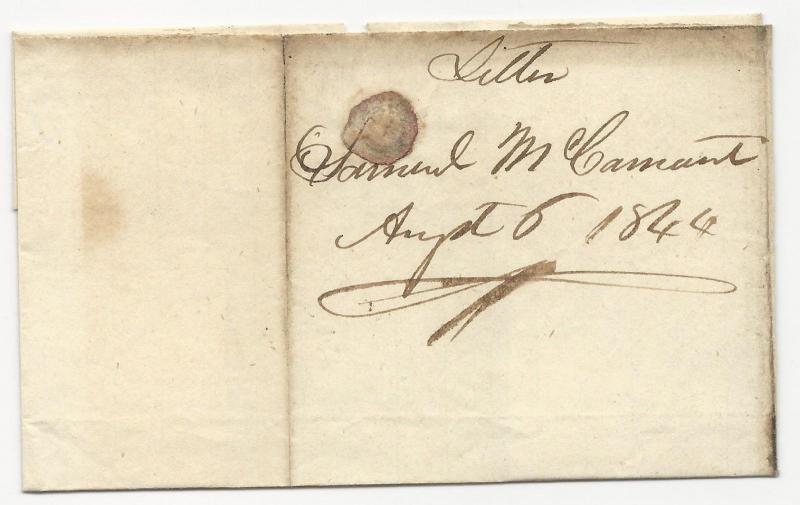 Letter
Samuel McCamant
Augst 6 1844